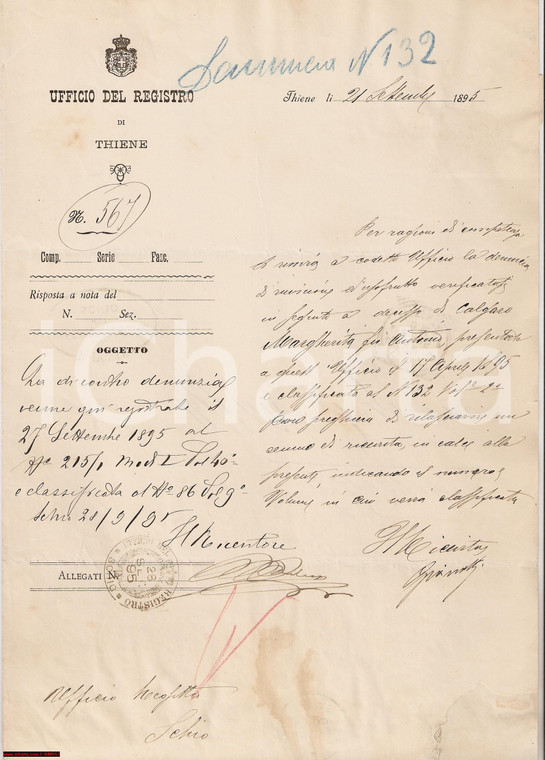 Denuncia N 132
UFFICIO DEL REGISTRO
DI
THIENE
Thiene li 21 Settembre 1895
N. 567
Comp. Serie Fasc.
Risposta a nota del
N. Sez.
OGGETTO
Per ragioni di competenza
si rinvia a codesto Ufficio la denuncia
di riunione d'usufrutto verificatasi
in seguito a decesso di Calgaro
Margherita fu Antonio, presentata
a quest'Ufficio il 17 Aprile 1895
e classificata al N 132 Vol 2°
con preghiera di rilasciarne un
cenno di ricevuta in calce alla
presente indicando il numero
Volume in cui verrà classificata
Il
La di contro denunzia
venne qui registrata il
27 Settembre 1895 al
N° 215/1 Mod
e classificata al N° 86 Vol 9°
Schio 28/9/95
Il Ricevitore
ALLEGATI N.
REGISTRO
28
95
Ufficio Registro
Schio
iCharta